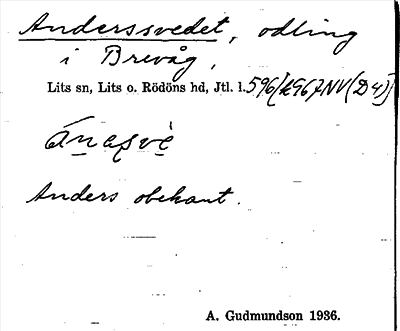 Anderssvedet, odling
i Brevåg,
Lits sn, Lits o. Rödöns hd, Jtl. l. 596
Anders obekant.
A. Gudmundson 1936.